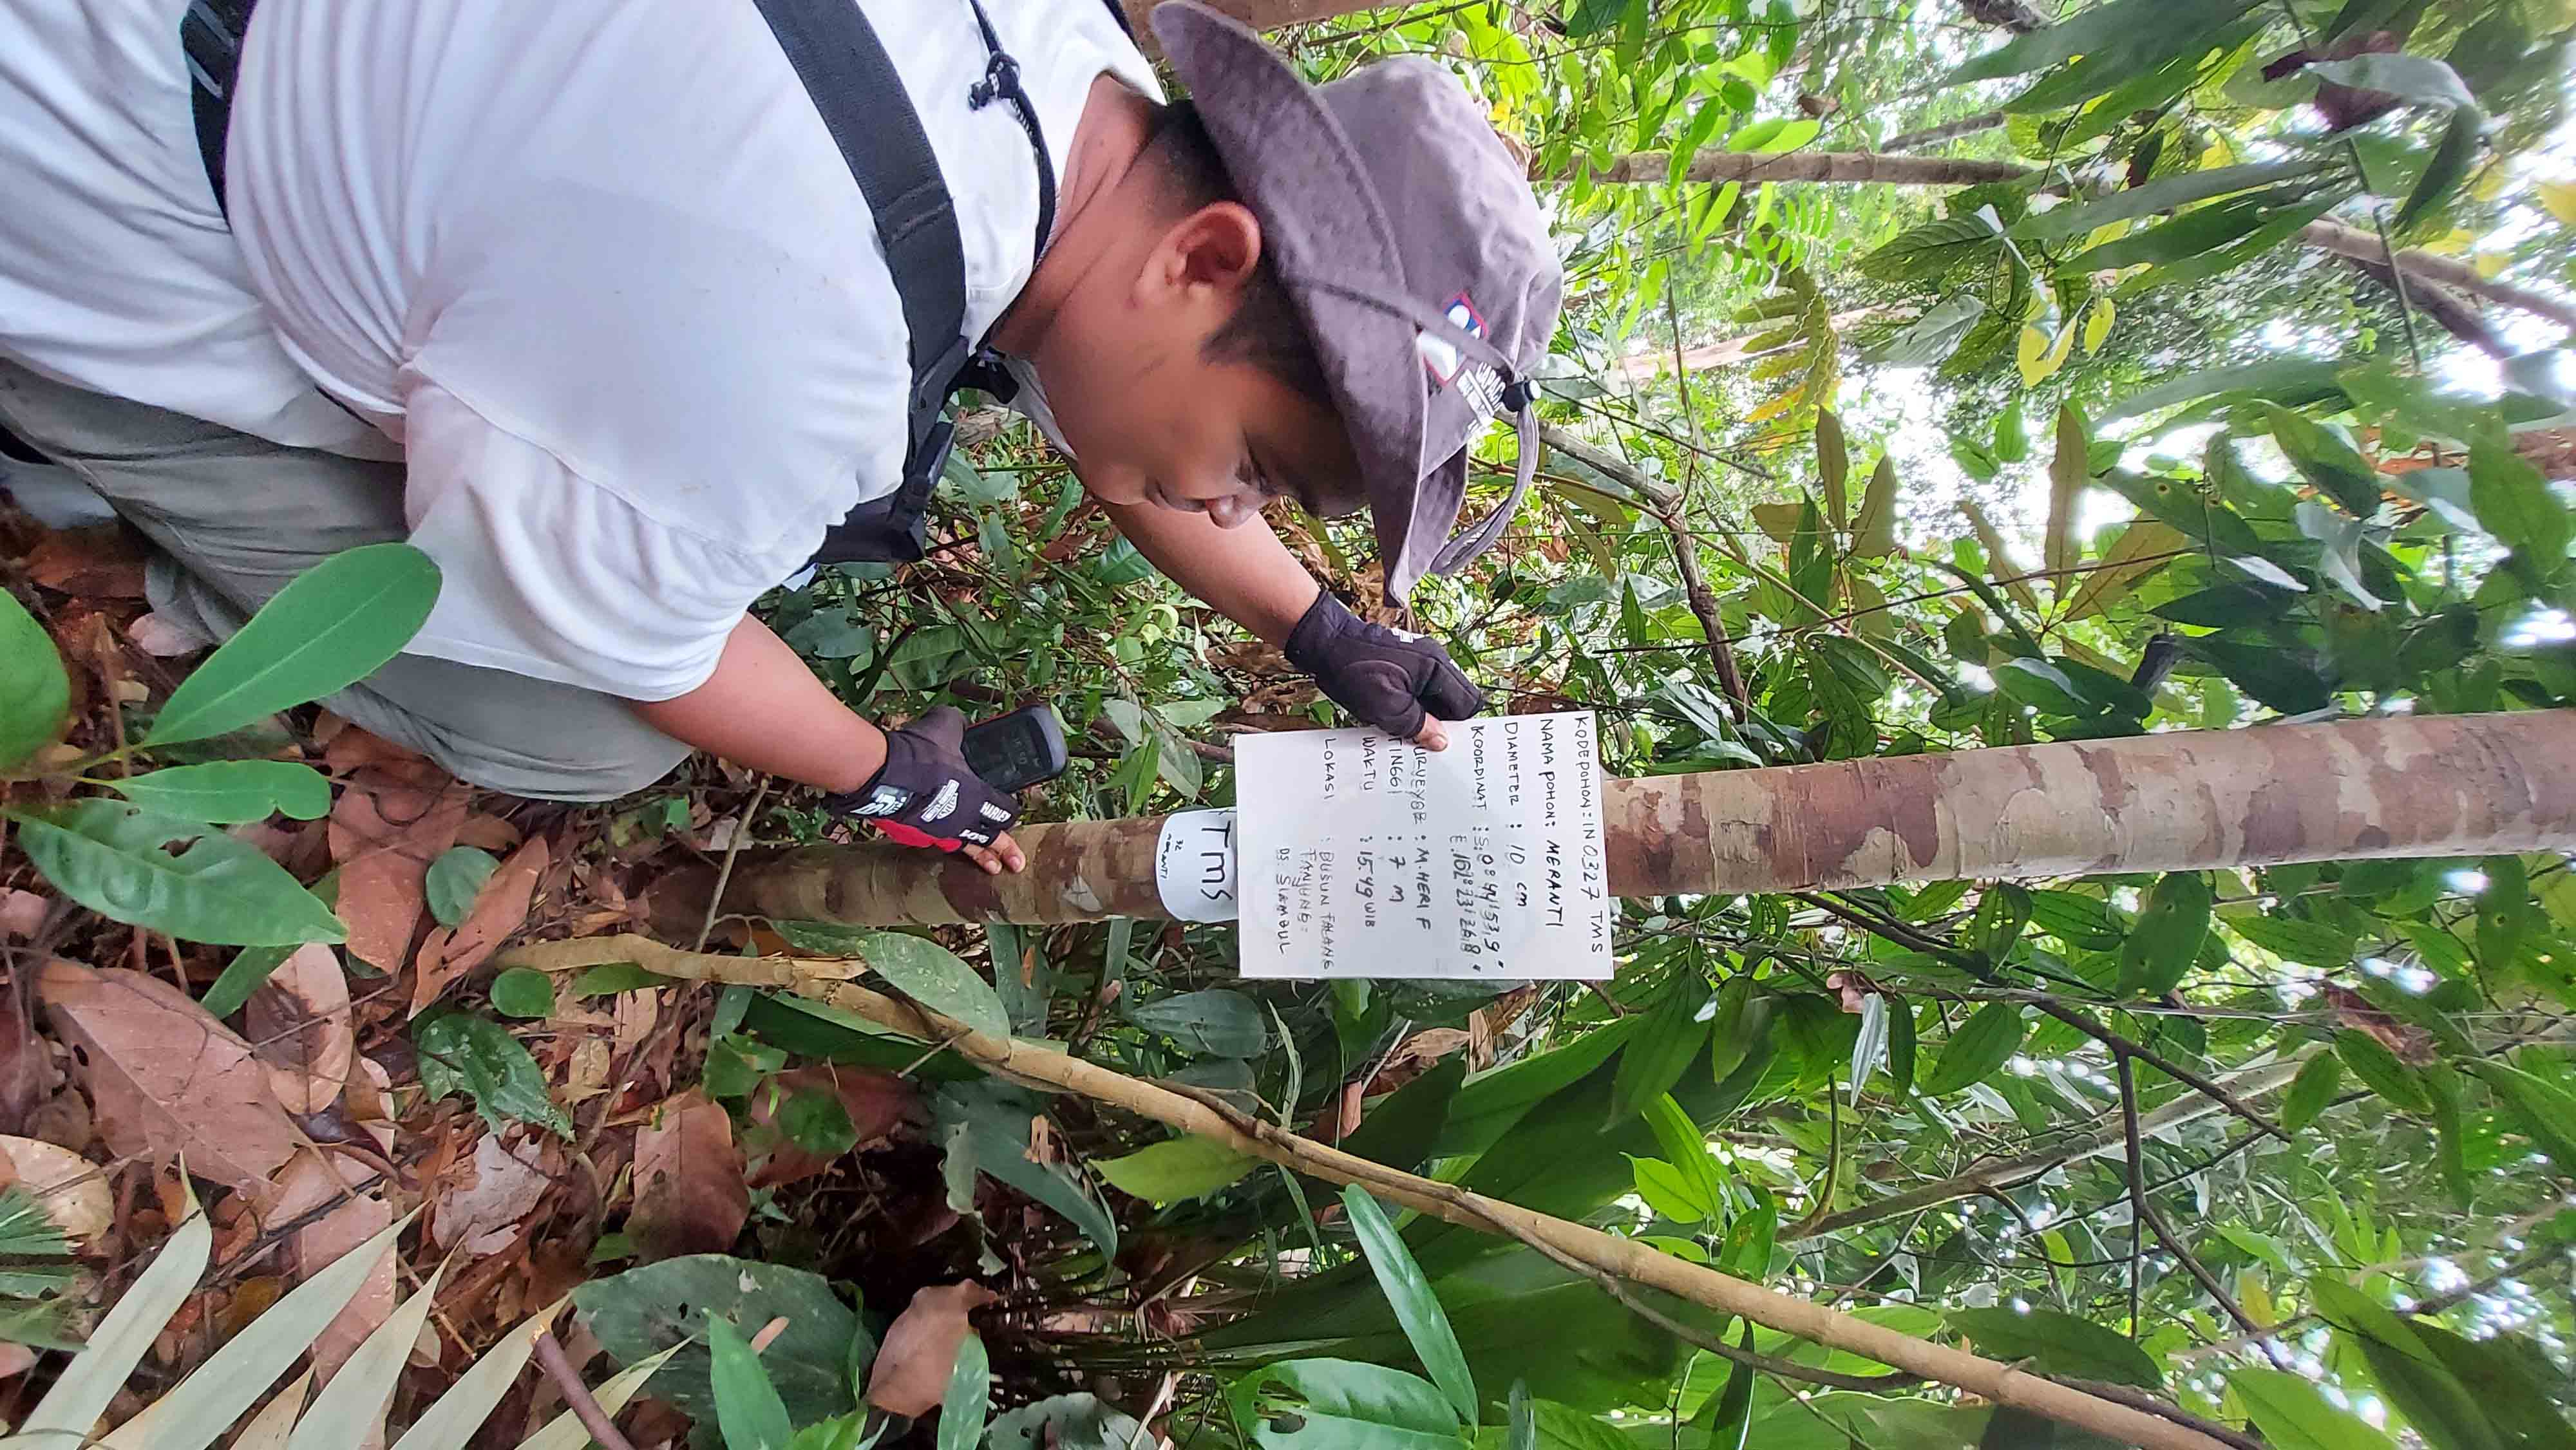 KODE POHON : IN 0327 TMS
NAMA POHON : MERANTI
DIAMETER : 10 cm
KOORDINAT : S.
E.
SURVEYOR : M. HERIF
TINGGI : 7 M
WAKTU : 15.49 WIB
LOKASI : DUSUN TALANG
TANJUNG
DS. SIAMBUL
TMS
32
MERANTI
HARLEY